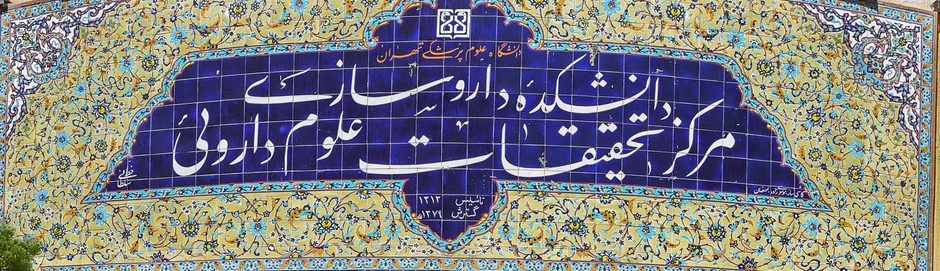 دانشگاه علوم پزشکی تهران
دانشکده داروسازی
مرکز تحقیقات علوم دارویی
تاسیس ۱۳۱۳
گسترش ۱۳۷۹